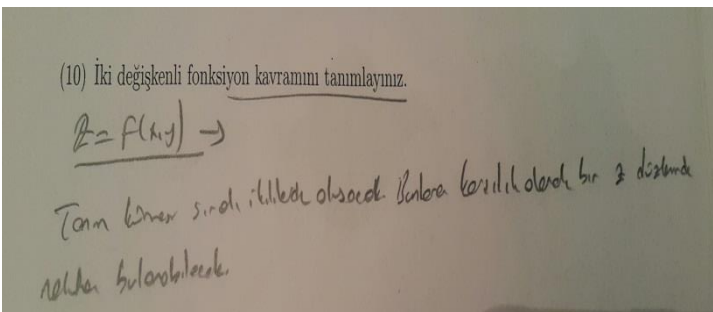 (10) İki değişkenli fonksiyon kavramını tanımlayınız.
z = f(x,y) →
Tanım kümesi sıralı ikililerden oluşacak. Bunlara karşılık olarak bir z düzlemde
nokta bulunabilecek.